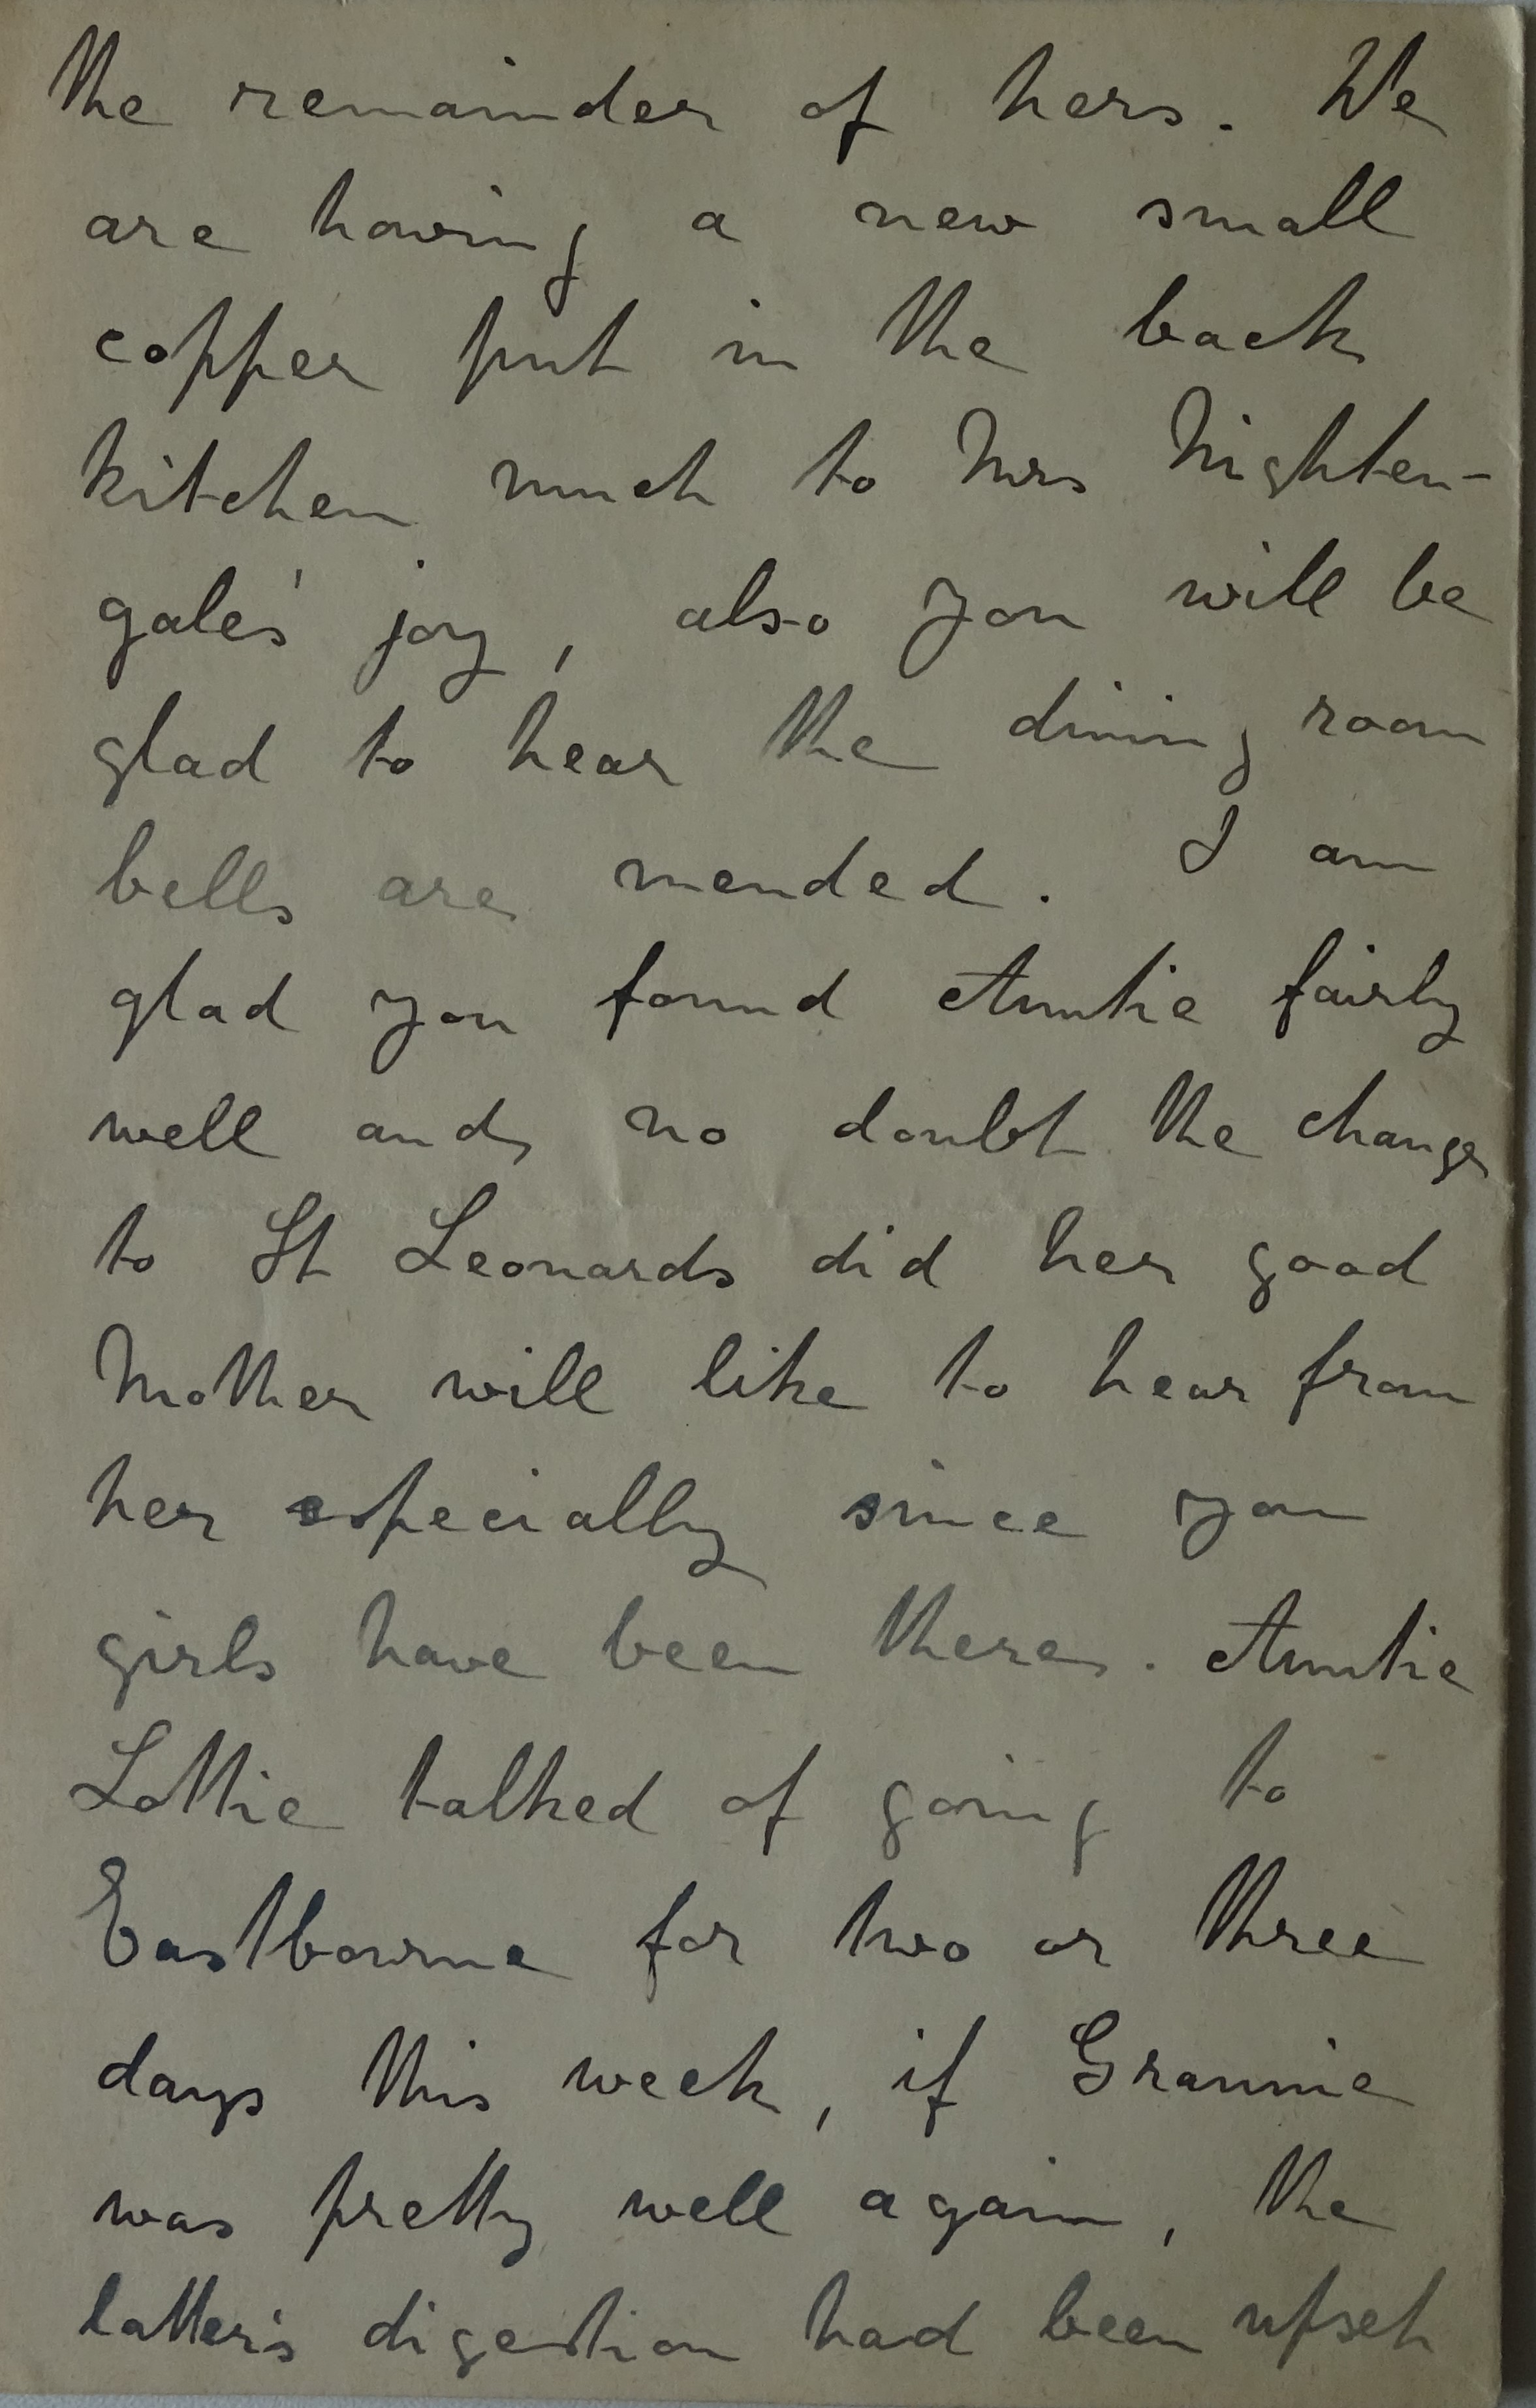 the remainder of hers. We
are having a new small
copper put in the back
kitchen much to Mrs Nighten-
gale's joy, also you will be
glad to hear the dining room
bells are mended. I am
glad you found Auntie fairly
well and no doubt the change
to St Leonards did her good
Mother will like to hear from
her especially since you
girls have been there. Auntie
Lottie talked of going to
Eastbourne for two or three
days this week, if Grannie
was pretty well again, the
latter's digestion had been upset